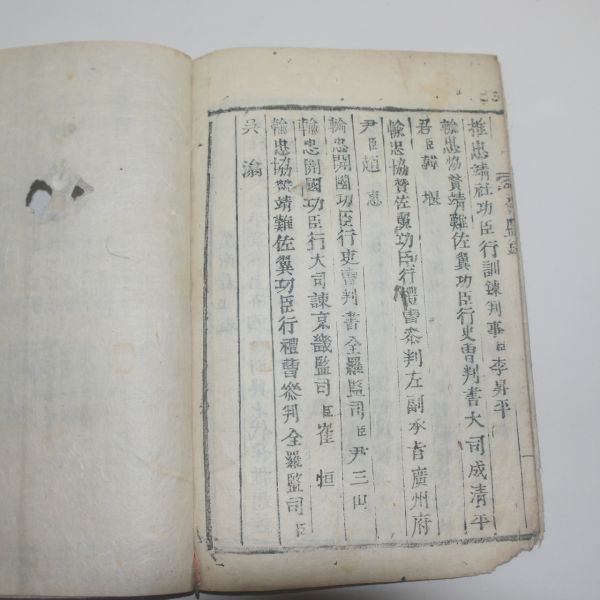 推忠靖社功臣行訓鍊判事臣李昇平
輸忠協贊靖難佐翼功臣行吏曹判書大司成清平
君臣韓堰
輸忠協贊佐翼功臣行禮曹叅判左副承旨廣州府
尹臣趙惠
輸忠開國功臣行吏曹判書全羅監司臣尹三山
輸忠開國功臣行大司諫京畿監司臣崔恒
輸忠協贊靖難佐翼功臣行禮曹叅判全羅監司臣
吳滃